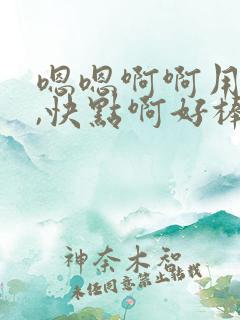 嗯嗯啊啊用
,快點啊好棒
神奈木智
未任同意禁止转载